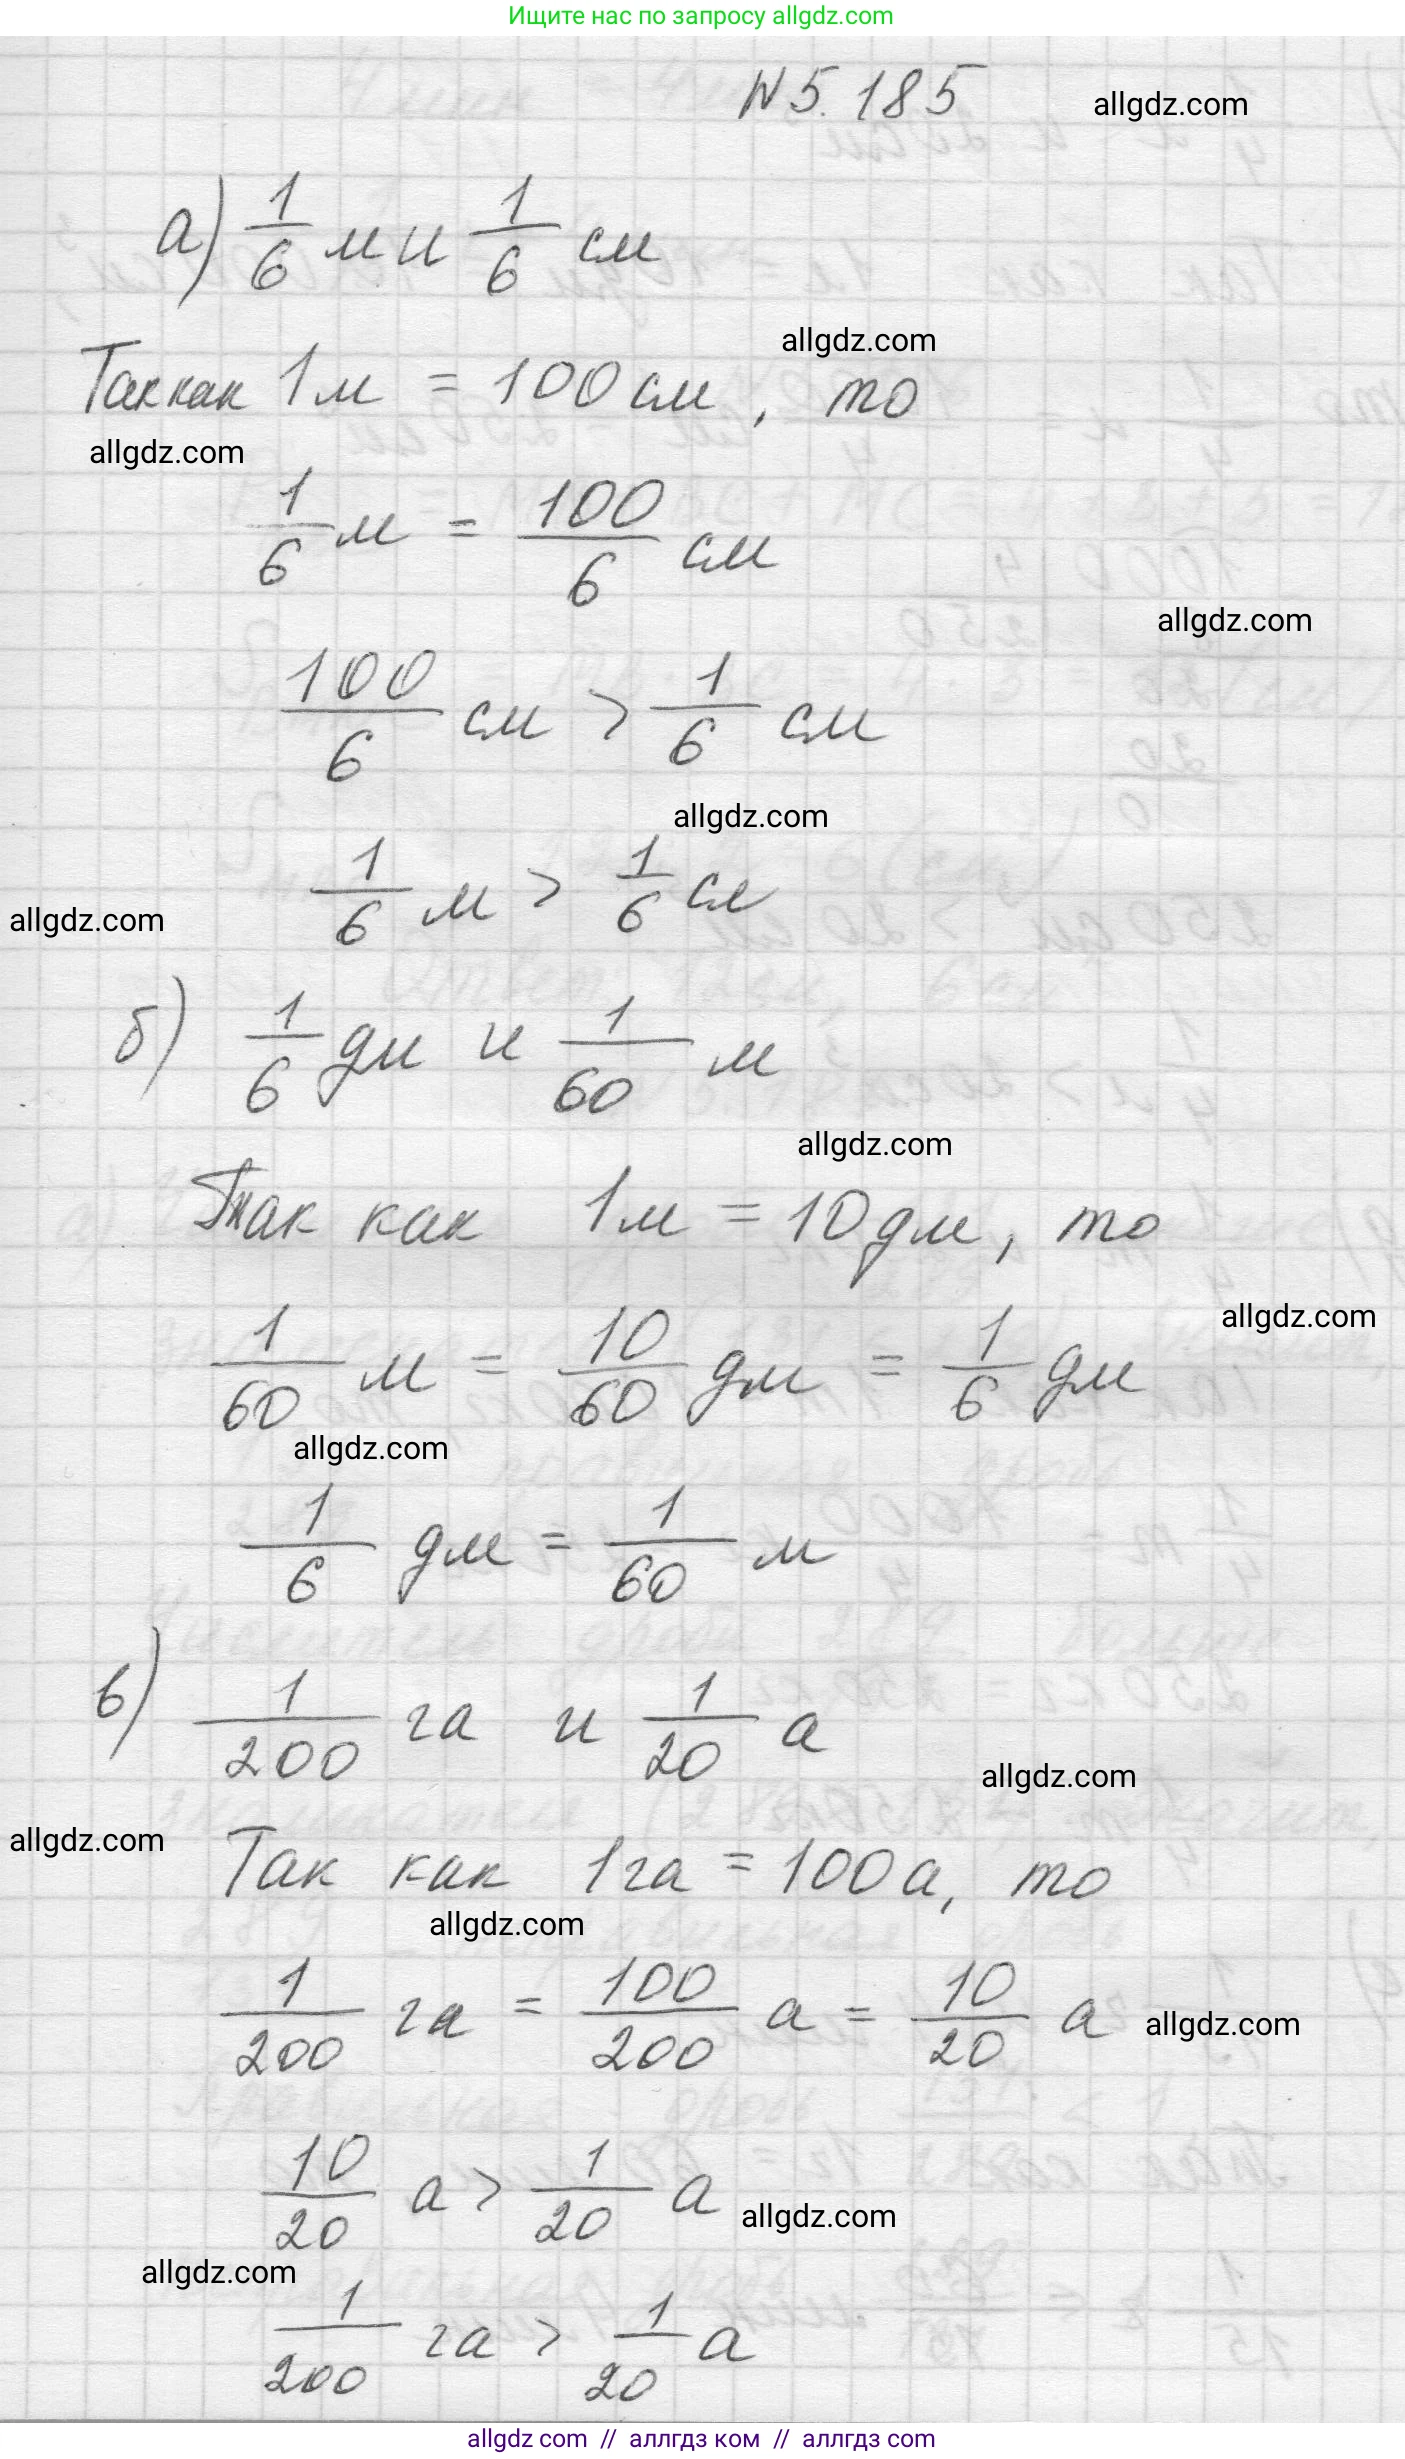 Ищите нас по запросу allgdz.com
N 5.185 allgdz.com
а) 1/6 м и 1/6 см
allgdz.com
Так как 1 м = 100 см, то
allgdz.com
1/6 м = 100/6 см
allgdz.com
100/6 см > 1/6 см
allgdz.com
1/6 м > 1/6 см
allgdz.com
б) 1/6 дм и 1/60 м
allgdz.com
Так как 1 м = 10 дм, то
allgdz.com
1/60 м = 10/60 дм = 1/6 дм
allgdz.com
1/6 дм = 1/60 м
в) 1/200 га и 1/20 а
allgdz.com
allgdz.com
Так как 1 га = 100 а, то
allgdz.com
1/200 га = 100/200 а = 10/20 а allgdz.com
10/20 а > 1/20 а allgdz.com
allgdz.com
1/200 га > 1/20 а
allgdz.com // аллгдз ком // аллгдз.com